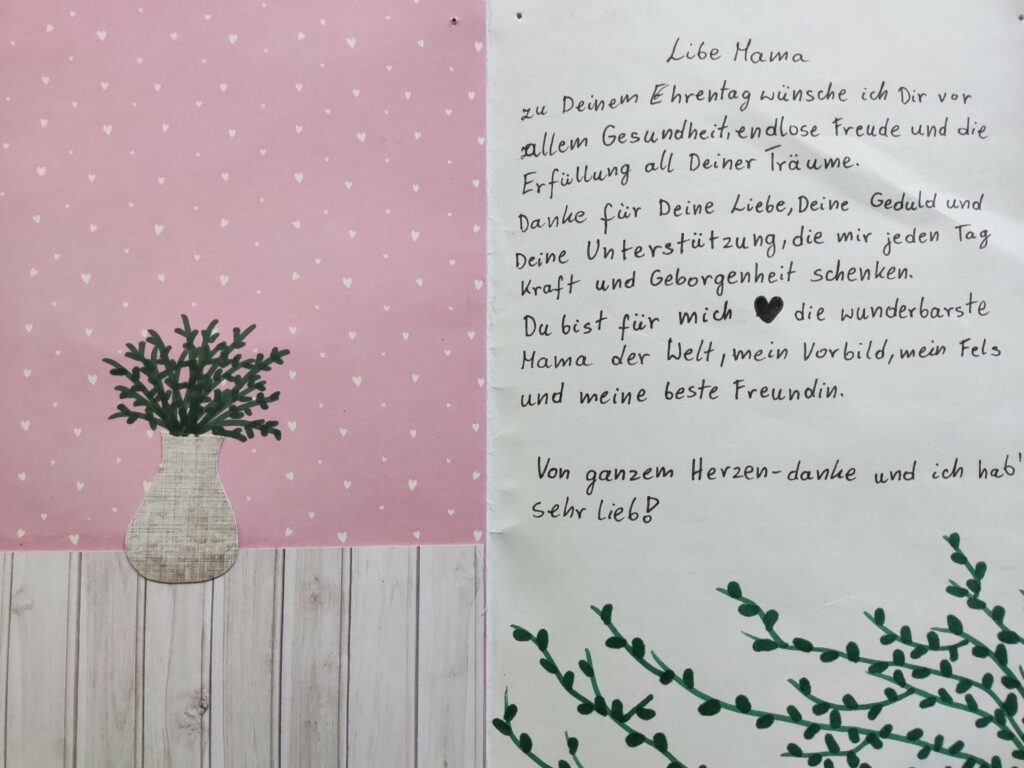 Libe Mama
zu Deinem Ehrentag wünsche ich Dir vor
allem Gesundheit, endlose Freude und die
Erfüllung all Deiner Träume.
Danke für Deine Liebe, Deine Geduld und
Deine Unterstützung, die mir jeden Tag
Kraft und Geborgenheit schenken.
Du bist für mich ♥ die wunderbarste
Mama der Welt, mein Vorbild, mein Fels
und meine beste Freundin.
Von ganzem Herzen-danke und ich hab'
sehr lieb!